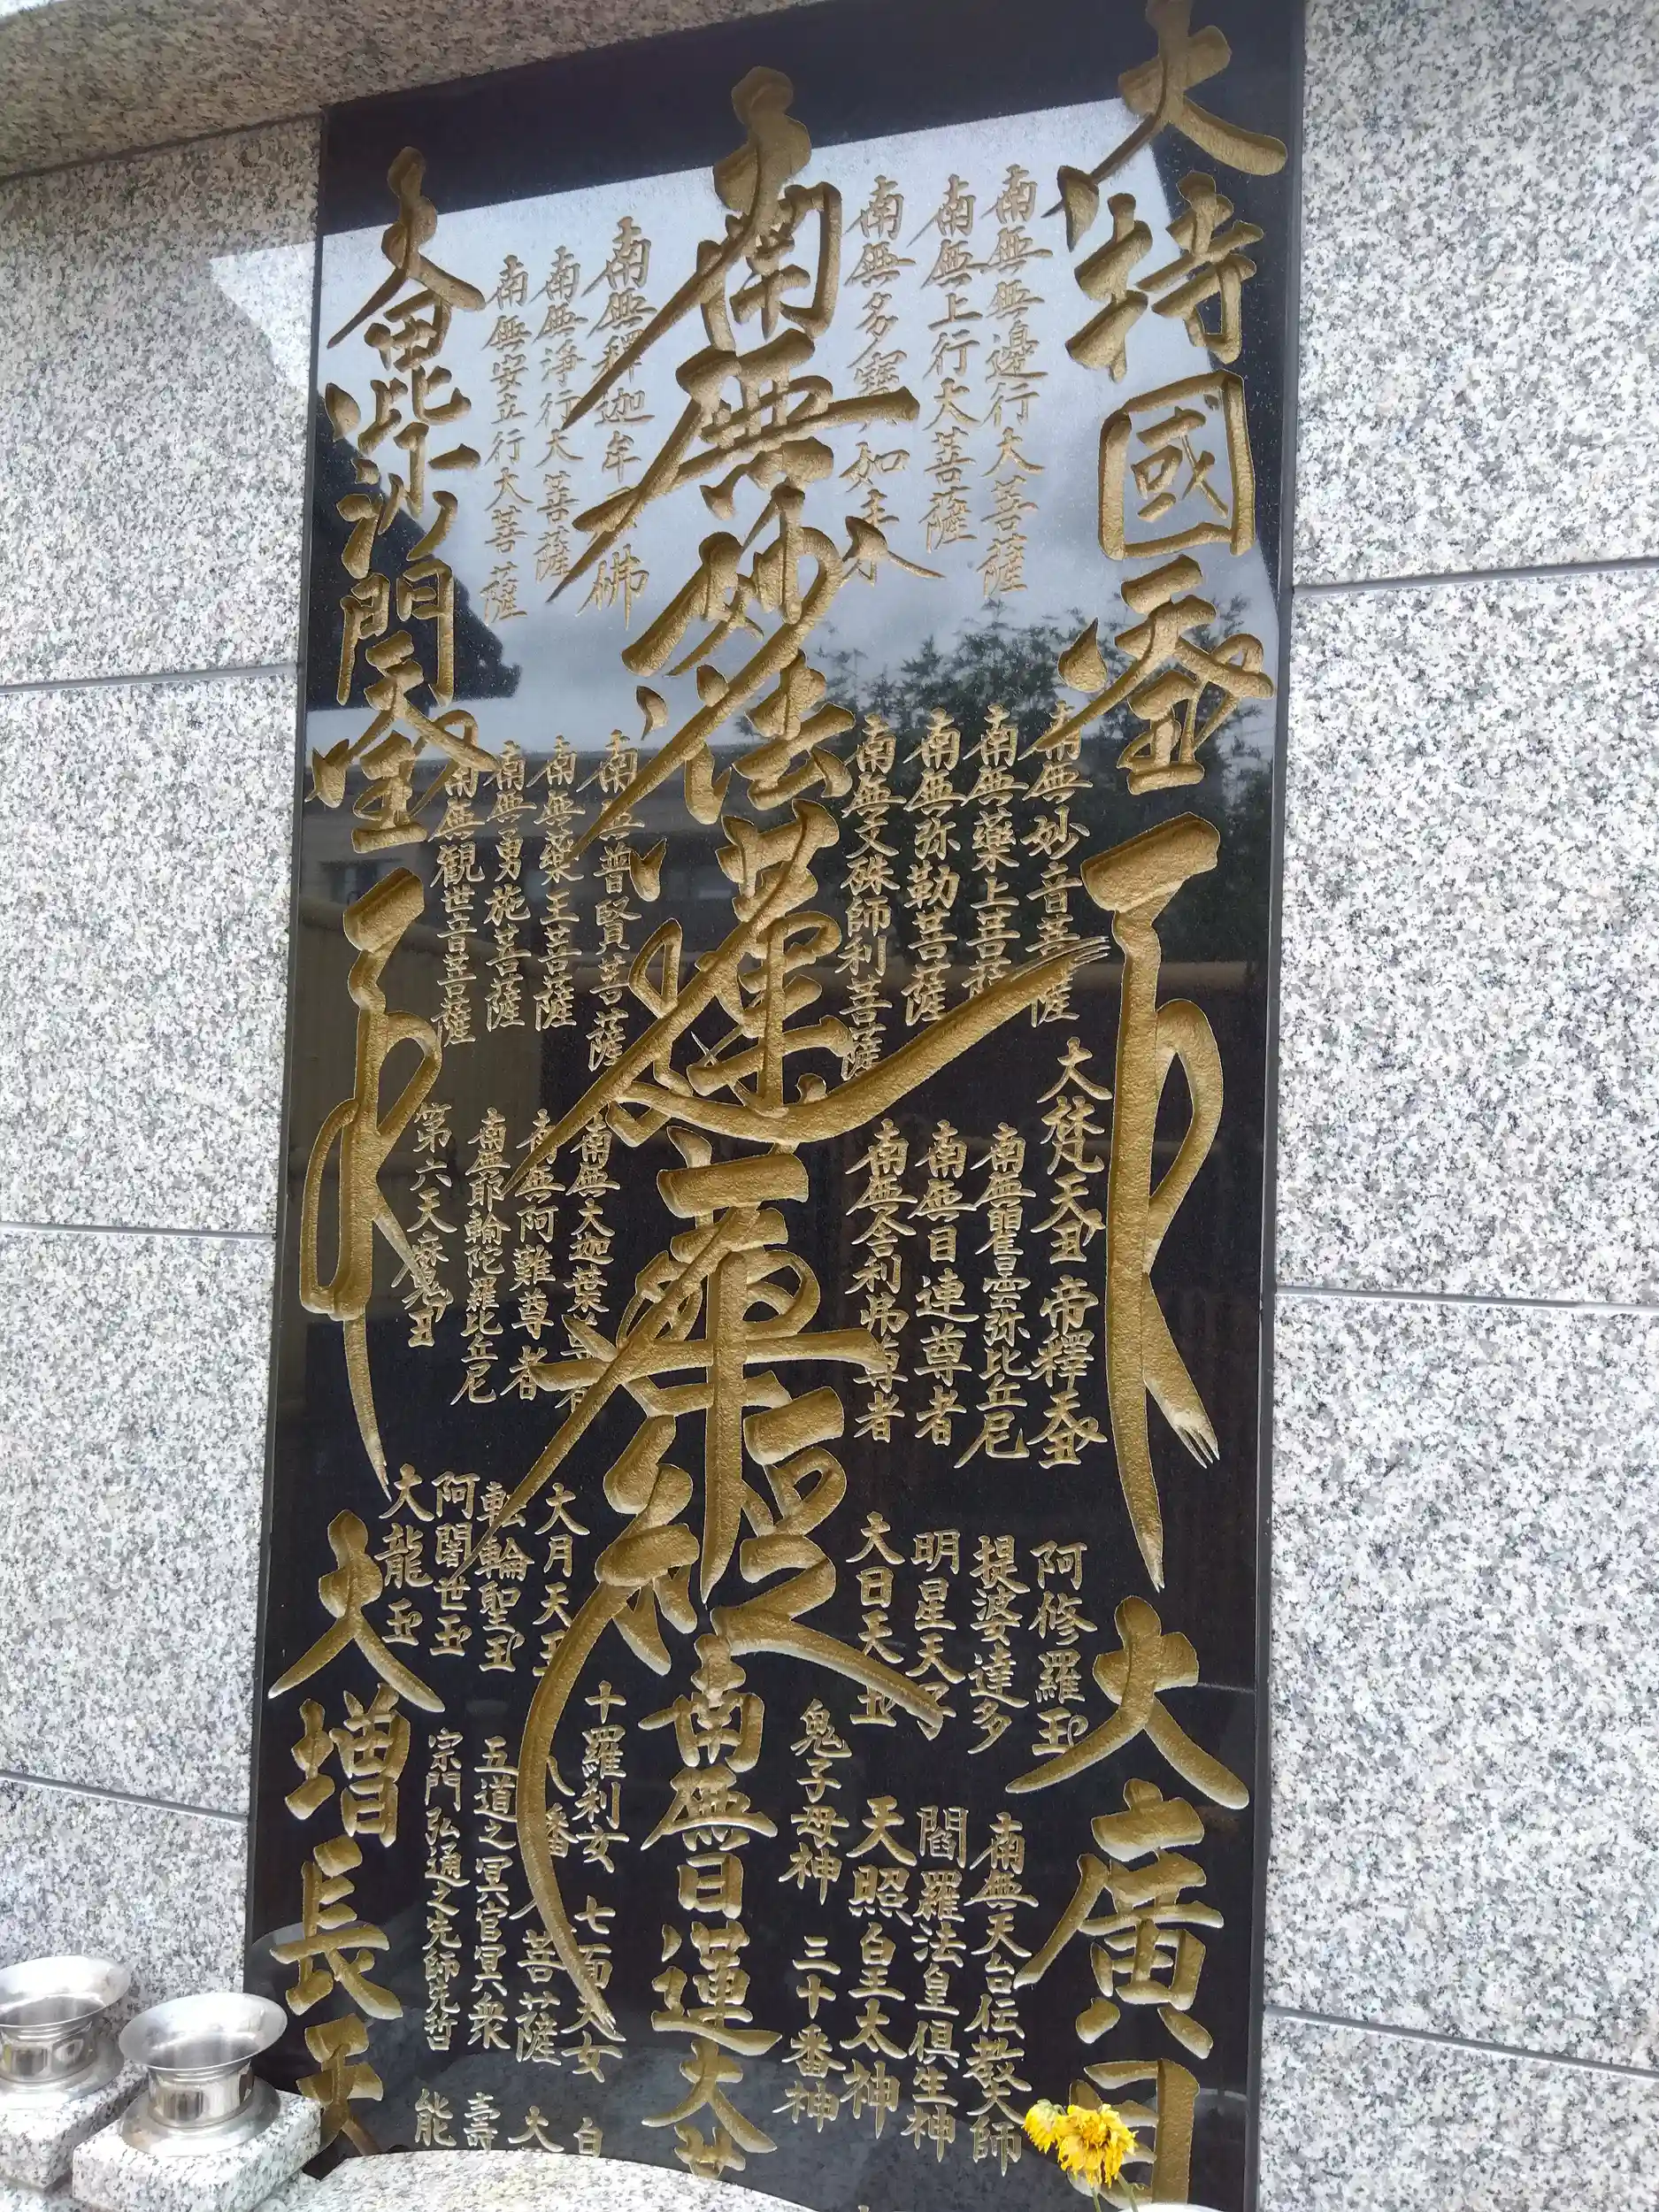 大持國天玉
南無無邊行大菩薩
南無上行大菩薩
南無多寶如来
南無妙法蓮華経
南無釋迦牟佛
南無浄行大菩薩
南無安立行大菩薩
大毘沙門天玉
南無妙音菩薩
南無藥上菩薩
南無弥勒菩薩
南無文殊師利菩薩
南無普賢菩薩
南無藥王菩薩
南無勇施菩薩
南無観世音菩薩
大梵天玉 帝釋天玉
南無瞿曇弥比丘尼
南無目連尊者
南無舎利弗尊者
南無大迦葉尊者
南無阿難尊者
南無耶輸陀羅比丘尼
第六天麻
阿修羅玉
提婆達多
明星天子
大日天玉
大月天玉
転輪聖玉
阿闍世玉
大龍玉
大廣目
南無天台伝教大師
閻羅法皇倶生神
天照皇太神
鬼子母神 三十番神
南無日蓮大
十羅刹女 七面天女 白
八番 大菩薩 大
五道之冥官冥衆 壽
宗門弘通之先師先哲 能
大増長天